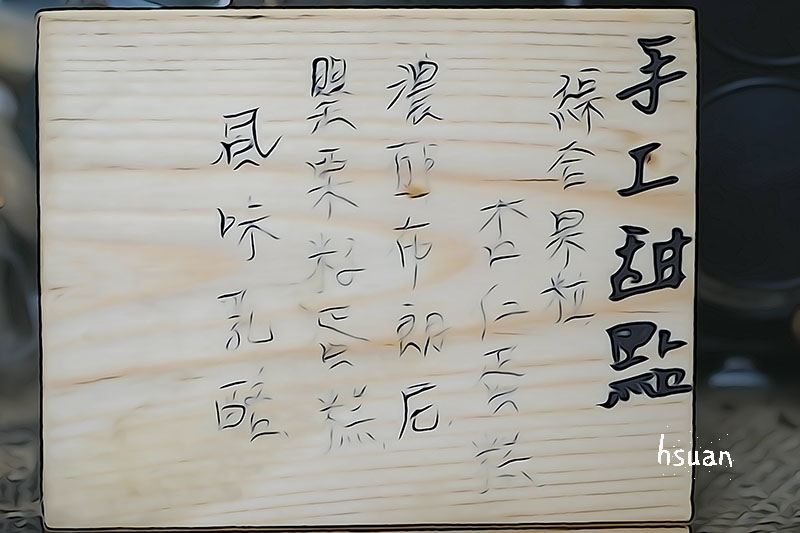 手工甜點
綜合果粒
杏仁蛋糕
濃郁布朗尼
罌粟籽蛋糕
風味乳酪
hsuan